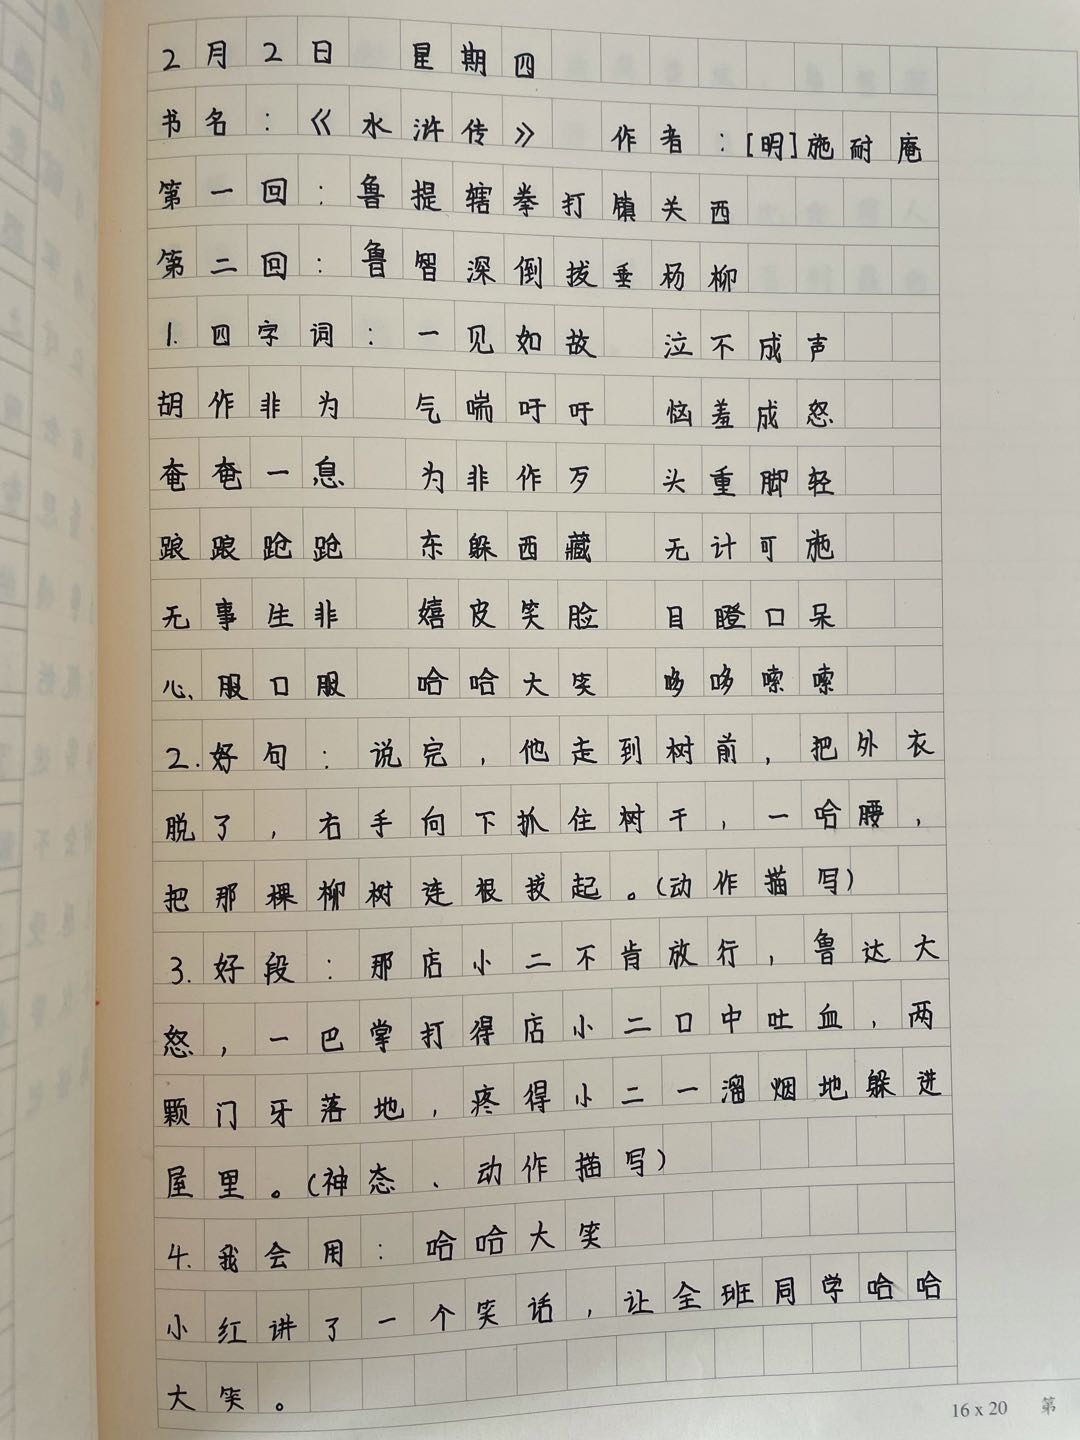 2月2日 星期四
书名：《水浒传》 作者：[明]施耐庵
第一回：鲁提辖拳打镇关西
第二回：鲁智深倒拔垂杨柳
1.四字词：一见如故 泣不成声
胡作非为 气喘吁吁 恼羞成怒
奄奄一息 为非作歹 头重脚轻
踉踉跄跄 东躲西藏 无计可施
无事生非 嬉皮笑脸 目瞪口呆
心服口服 哈哈大笑 哆哆嗦嗦
2.好句：说完，他走到树前，把外衣
脱了，右手向下抓住树干，一哈腰，
把那棵柳树连根拔起。(动作描写)
3.好段：那店小二不肯放行，鲁达大
怒，一巴掌打得店小二口中吐血，两
颗门牙落地，疼得小二一溜烟地躲进
屋里。(神态、动作描写)
4.我会用：哈哈大笑
小红讲了一个笑话，让全班同学哈哈
大笑。
16x20 第